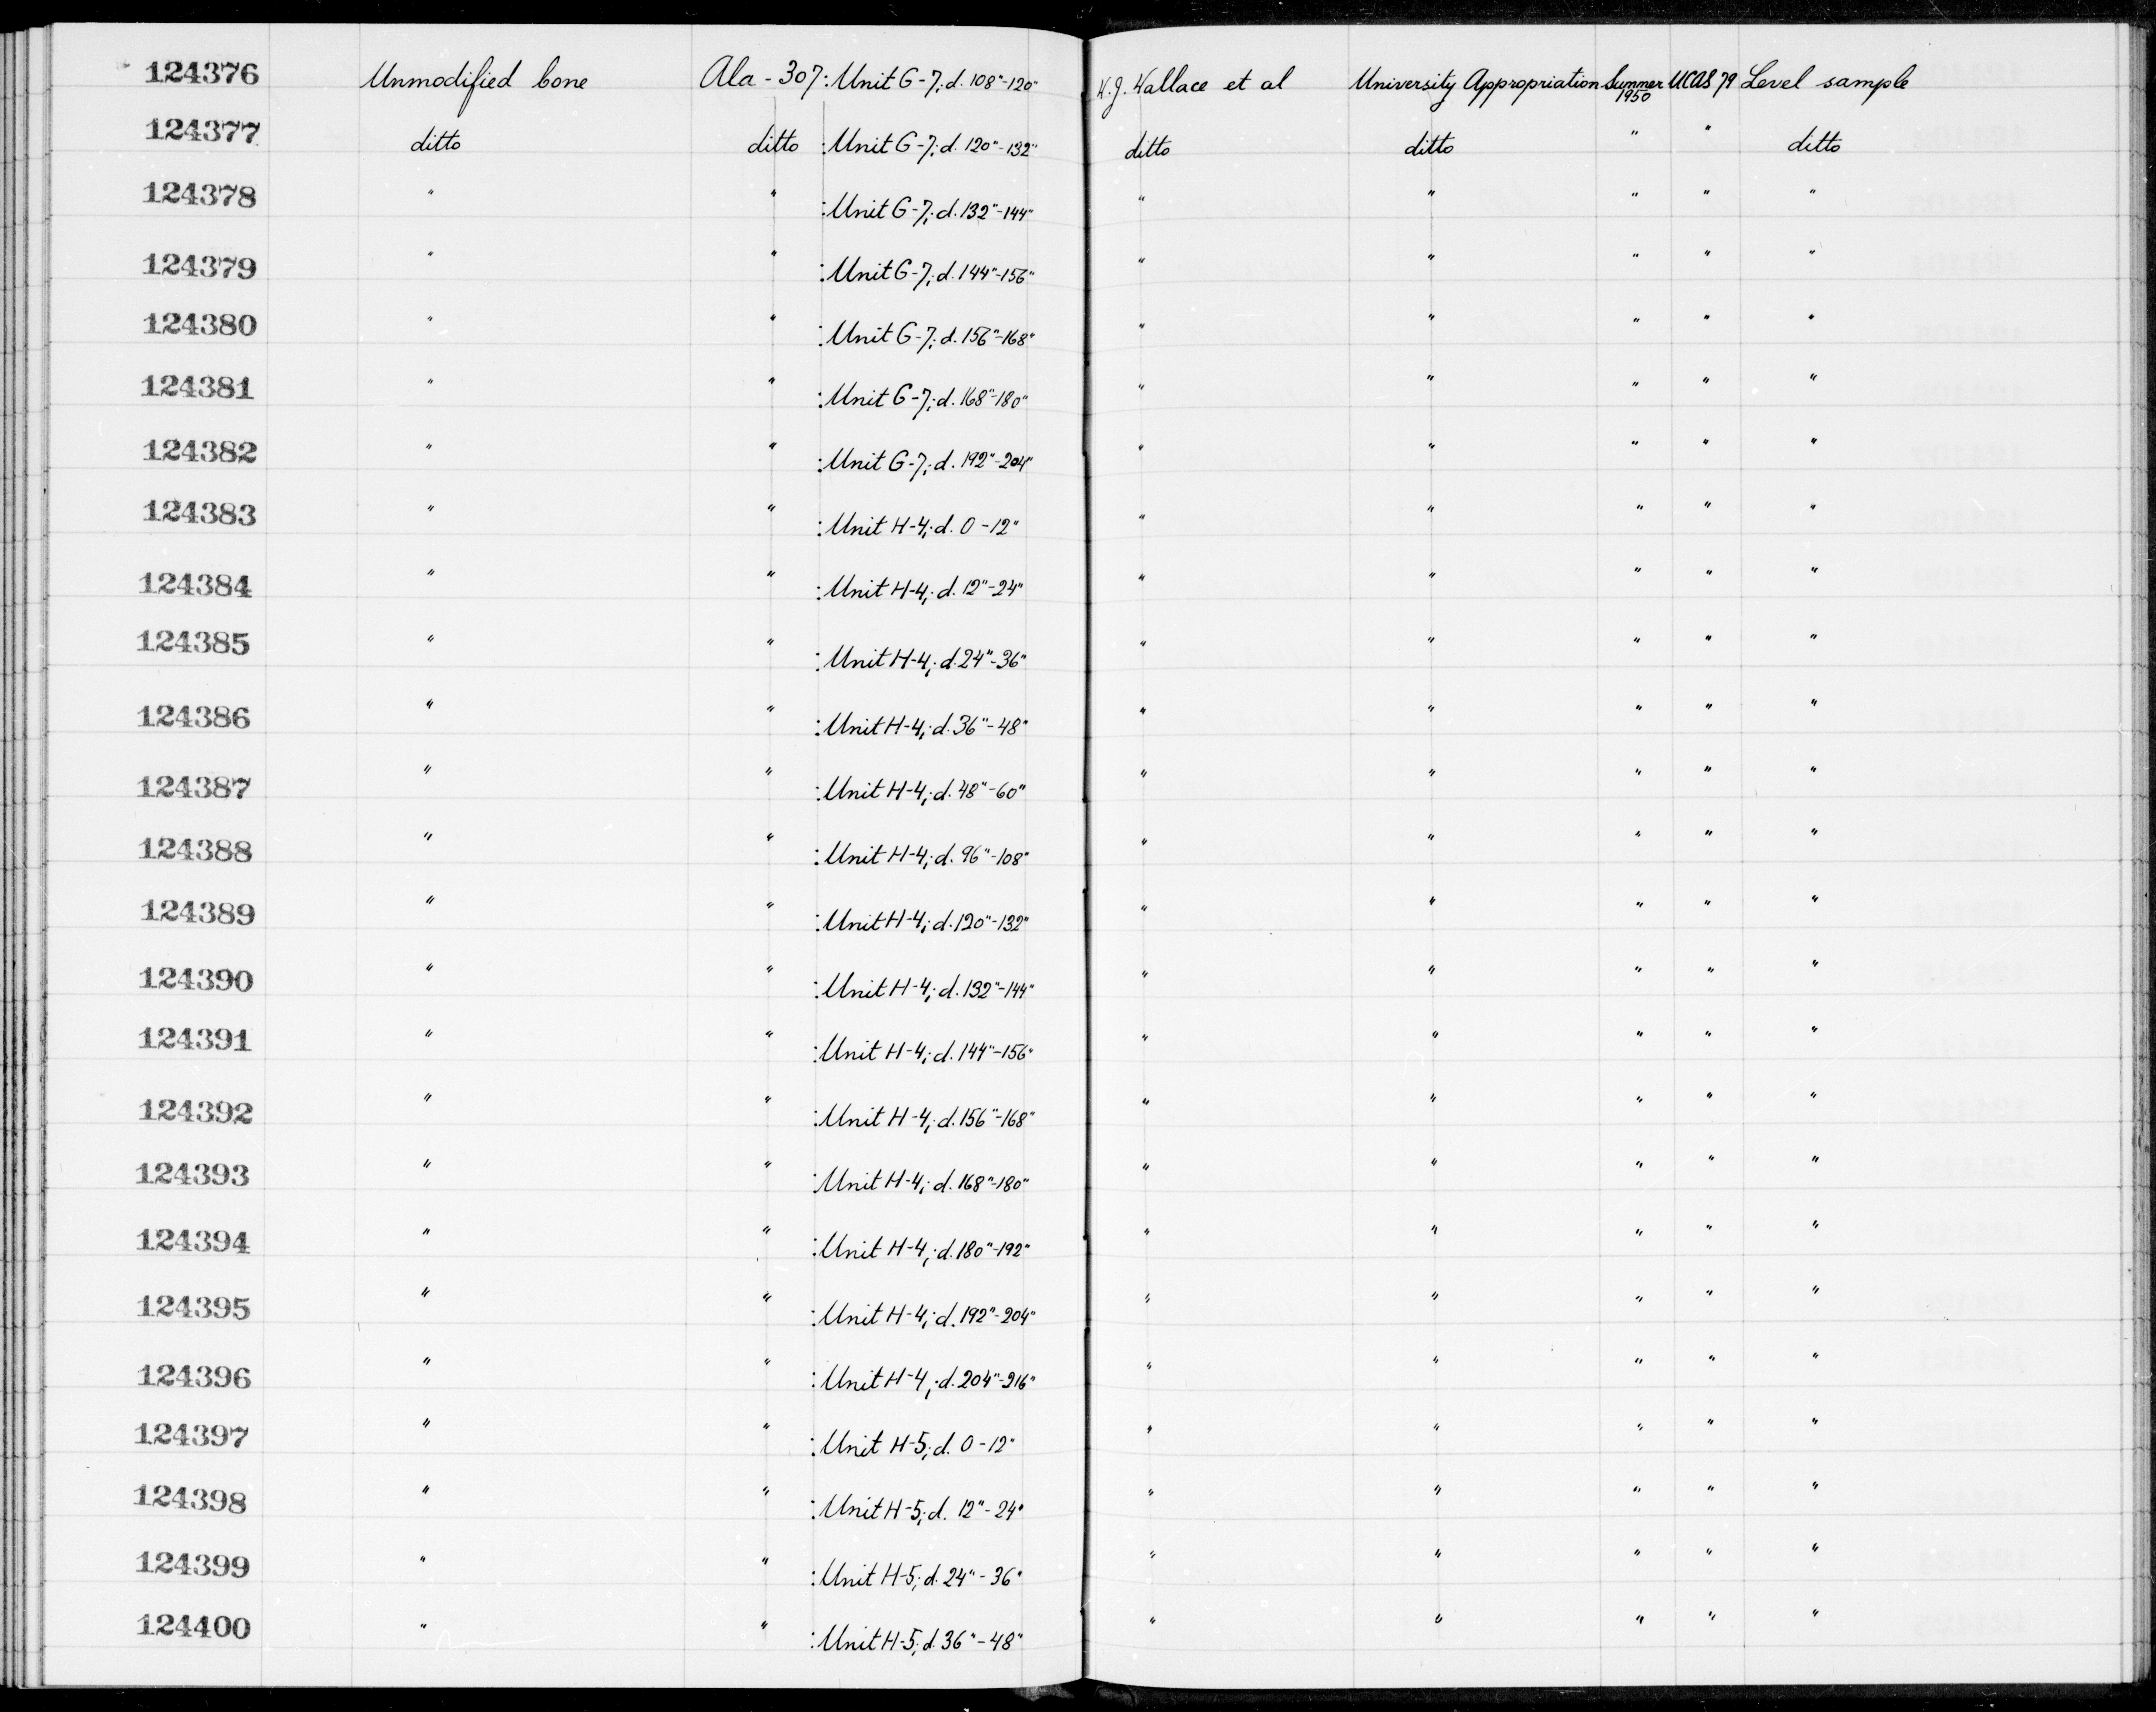 124376 Unmodified bone Ala - 307: Unit G-7; d. 108"-120" W.J. Wallace et al University Appropriation Summer 1950 UCAS 79 Level sample
124377 ditto ditto : Unit G-7; d. 120"-132" ditto ditto " " ditto
124378 " " : Unit G-7; d. 132"-144" " " " " "
124379 " " : Unit G-7; d. 144"-156" " " " " "
124380 " " : Unit G-7; d. 156"-168" " " " " "
124381 " " : Unit G-7; d. 168"-180" " " " " "
124382 " " : Unit G-7; d. 192"-204" " " " " "
124383 " " : Unit H-4; d. 0-12" " " " " "
124384 " " : Unit H-4; d. 12"-24" " " " " "
124385 " " : Unit H-4; d. 24"-36" " " " " "
124386 " " : Unit H-4; d. 36"-48" " " " " "
124387 " " : Unit H-4; d. 48"-60" " " " " "
124388 " " : Unit H-4; d. 96"-108" " " " " "
124389 " " : Unit H-4; d. 120"-132" " " " " "
124390 " " : Unit H-4; d. 132"-144" " " " " "
124391 " " : Unit H-4; d. 144"-156" " " " " "
124392 " " : Unit H-4; d. 156"-168" " " " " "
124393 " " : Unit H-4; d. 168"-180" " " " " "
124394 " " : Unit H-4; d. 180"-192" " " " " "
124395 " " : Unit H-4; d. 192"-204" " " " " "
124396 " " : Unit H-4; d. 204"-216" " " " " "
124397 " " : Unit H-5; d. 0-12" " " " " "
124398 " " : Unit H-5; d. 12"-24" " " " " "
124399 " " : Unit H-5; d. 24"-36" " " " " "
124400 " " : Unit H-5; d. 36"-48" " " " " "